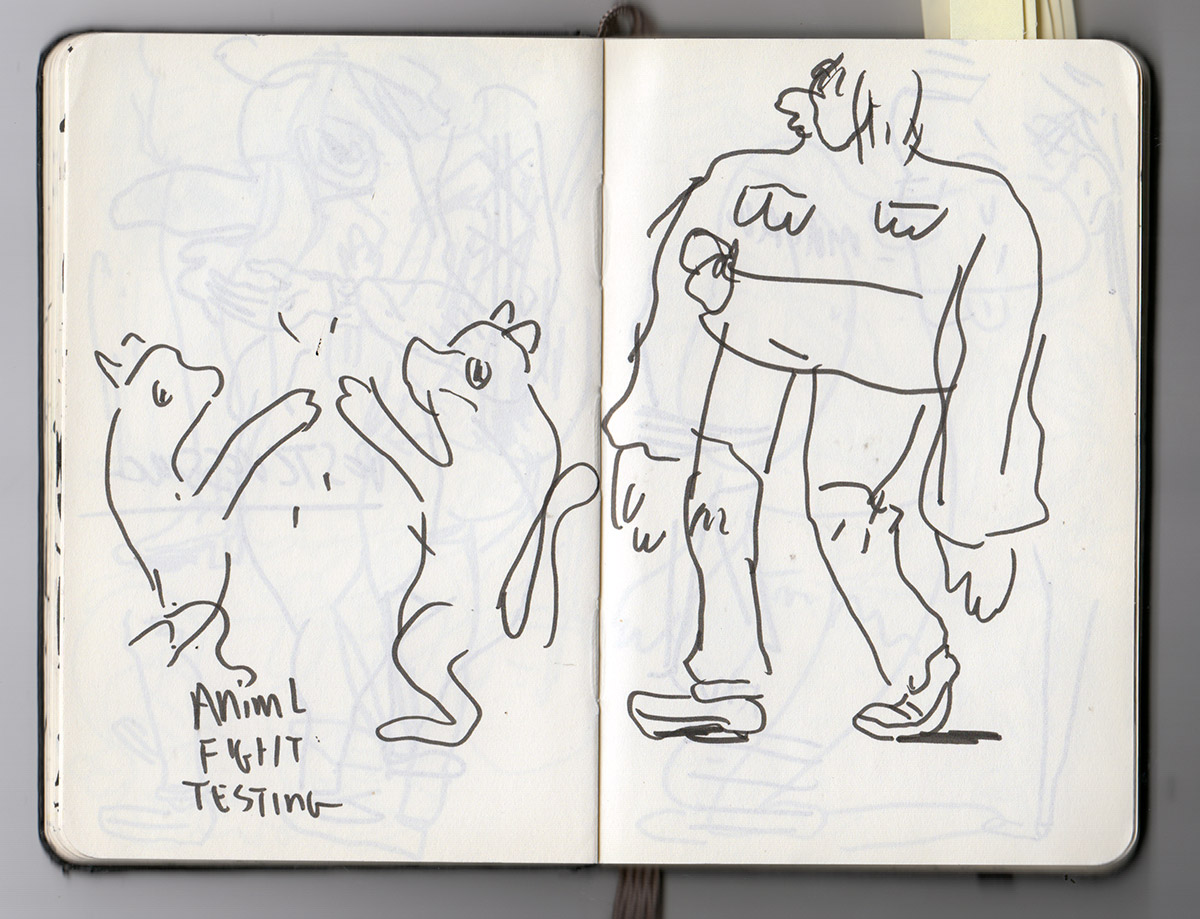 ANIML
FIGHT
TESTING